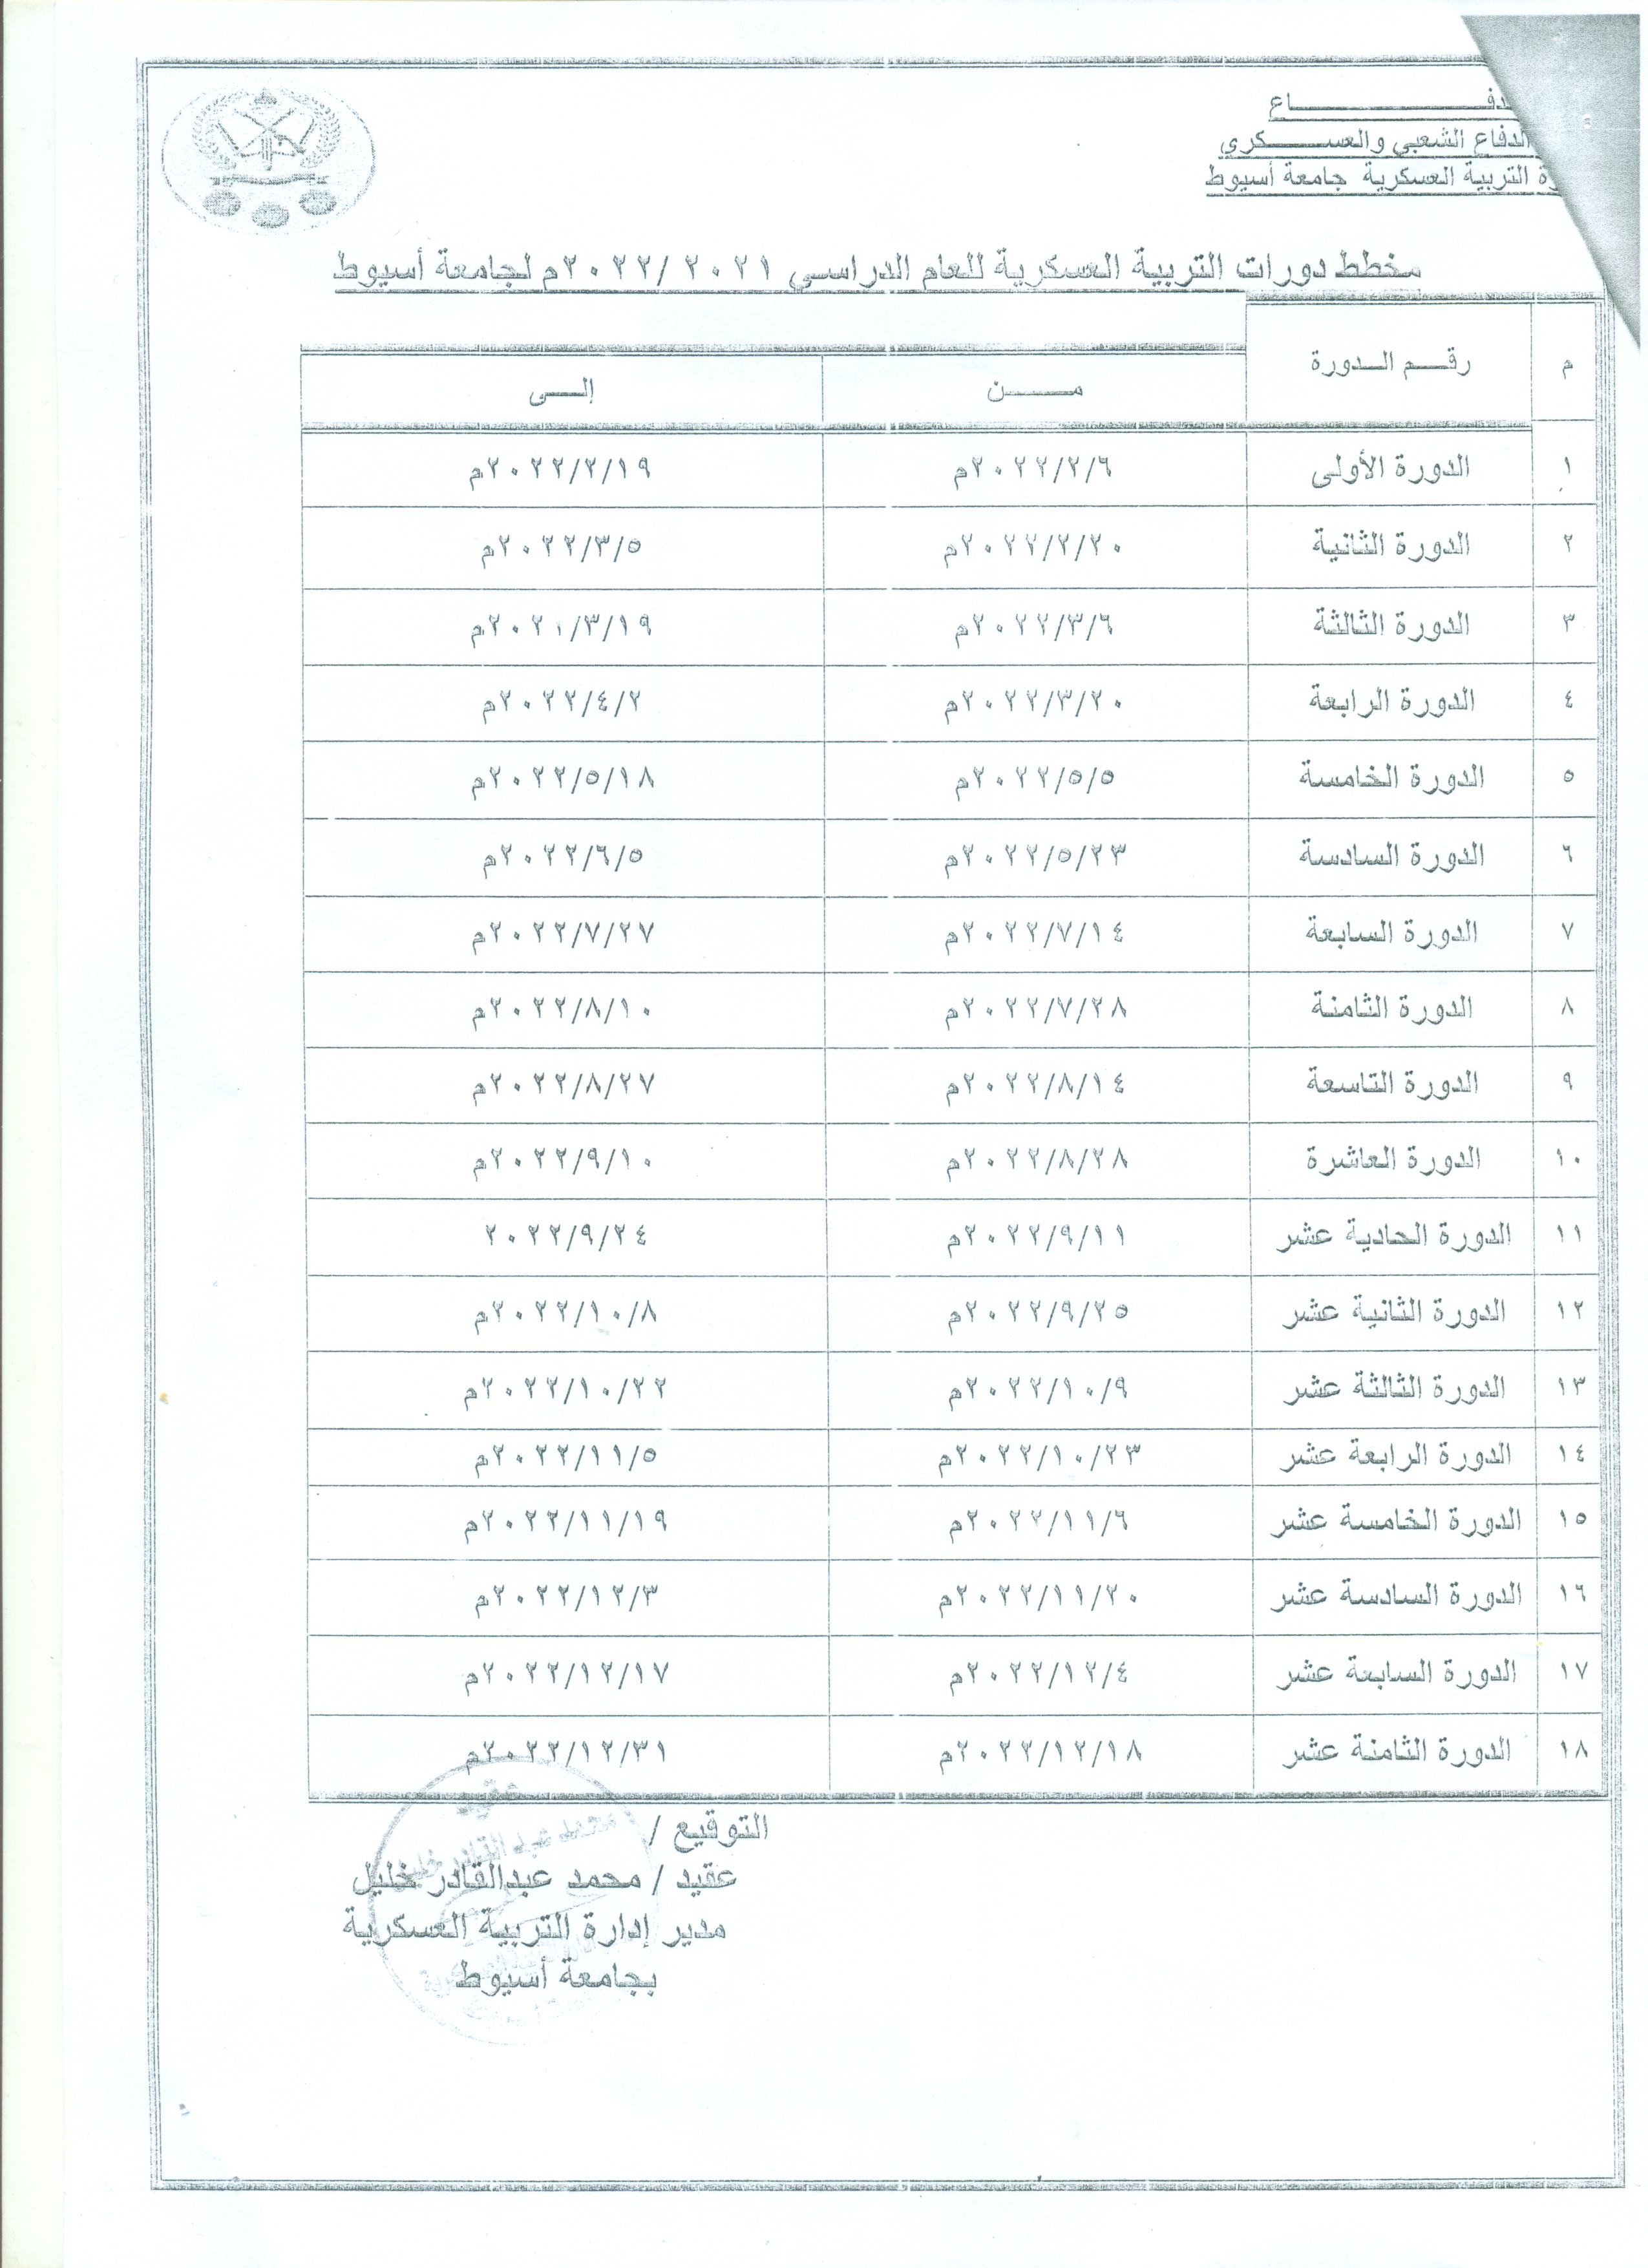 ـاع
الدفاع الشعبي والعسـكري
التربية العسكرية جامعة أسيوط
مخطط دورات التربية العسكرية للعام الدراسي ٢٠٢١ /٢٠٢٢م لجامعة أسيوط
م رقـم الـدورة مـن إلـى
١ الدورة الأولى ٢٠٢٢/٢/٦م ٢٠٢٢/٢/١٩م
٢ الدورة الثانية ٢٠٢٢/٢/٢٠م ٢٠٢٢/٣/٥م
٣ الدورة الثالثة ٢٠٢٢/٣/٦م ٢٠٢١/٣/١٩م
٤ الدورة الرابعة ٢٠٢٢/٣/٢٠م ٢٠٢٢/٤/٢م
٥ الدورة الخامسة ٢٠٢٢/٥/٥م ٢٠٢٢/٥/١٨م
٦ الدورة السادسة ٢٠٢٢/٥/٢٣م ٢٠٢٢/٦/٥م
٧ الدورة السابعة ٢٠٢٢/٧/١٤م ٢٠٢٢/٧/٢٧م
٨ الدورة الثامنة ٢٠٢٢/٧/٢٨م ٢٠٢٢/٨/١٠م
٩ الدورة التاسعة ٢٠٢٢/٨/١٤م ٢٠٢٢/٨/٢٧م
١٠ الدورة العاشرة ٢٠٢٢/٨/٢٨م ٢٠٢٢/٩/١٠م
١١ الدورة الحادية عشر ٢٠٢٢/٩/١١م ٢٠٢٢/٩/٢٤
١٢ الدورة الثانية عشر ٢٠٢٢/٩/٢٥م ٢٠٢٢/١٠/٨م
١٣ الدورة الثالثة عشر ٢٠٢٢/١٠/٩م ٢٠٢٢/١٠/٢٢م
١٤ الدورة الرابعة عشر ٢٠٢٢/١٠/٢٣م ٢٠٢٢/١١/٥م
١٥ الدورة الخامسة عشر ٢٠٢٢/١١/٦م ٢٠٢٢/١١/١٩م
١٦ الدورة السادسة عشر ٢٠٢٢/١١/٢٠م ٢٠٢٢/١٢/٣م
١٧ الدورة السابعة عشر ٢٠٢٢/١٢/٤م ٢٠٢٢/١٢/١٧م
١٨ الدورة الثامنة عشر ٢٠٢٢/١٢/١٨م ٢٠٢٢/١٢/٣١م
التوقيع /
عقيد / محمد عبدالقادر خليل
مدير إدارة التربية العسكرية
بجامعة أسيوط